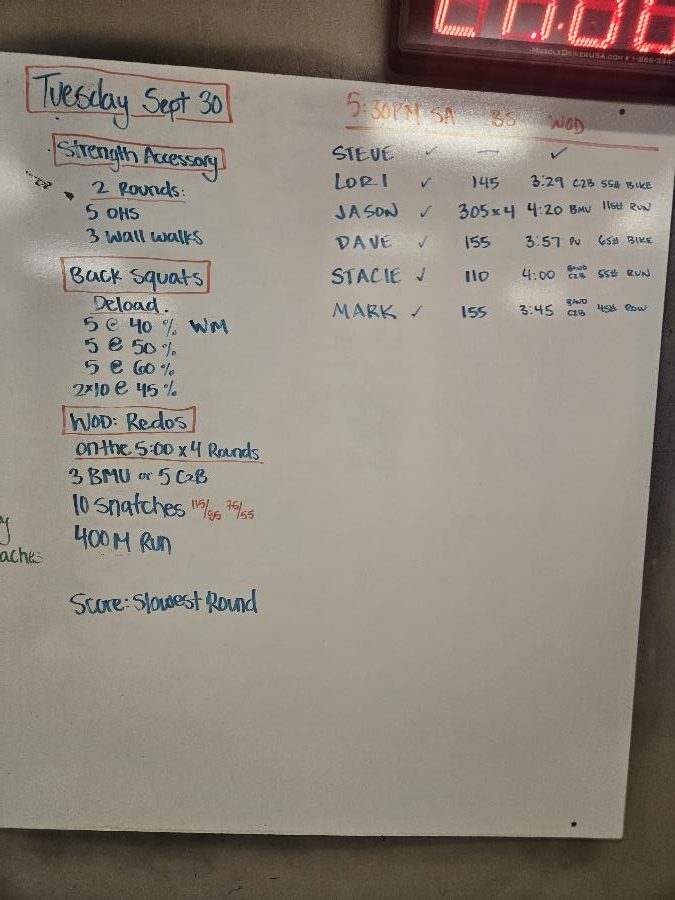 MUSCLEDRIVERUSA.COM
Tuesday Sept 30
Strength Accessory
2 Rounds:
5 OHS
3 Wall Walks
Back Squats
Deload.
5 @ 40 % WM
5 @ 50 %
5 @ 60 %
2x10 @ 45 %
WOD: Redos
on the 5:00 x 4 Rounds
3 BMU or 5 C2B
10 Snatches 115/85 75/55
400 M Run
Score: Slowest Round
5:30PM SA BS WOD
STEVE ✓ — ✓
LORI ✓ 145 3:29 C2B 55# BIKE
JASON ✓ 305x4 4:20 BMU 115# RUN
DAVE ✓ 155 3:57 PU 65# BIKE
STACIE ✓ 110 4:00 BAND C2B 55# RUN
MARK ✓ 155 3:45 BAND C2B 45# ROW